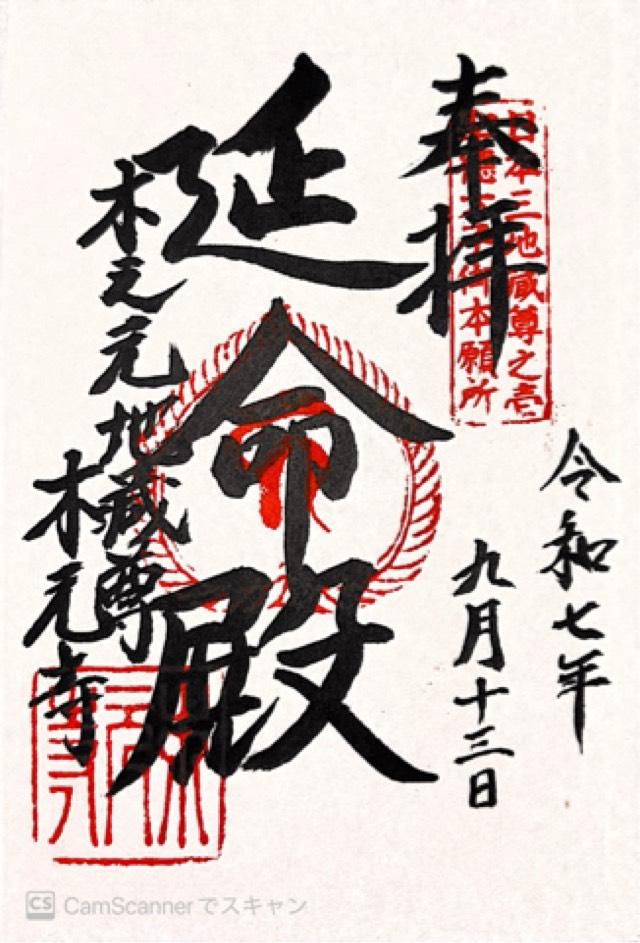 奉拝
日本三地蔵尊之壱
御本願所
令和七年
九月十三日
延命殿
木之元地蔵尊
木之元寺
CS CamScannerでスキャン